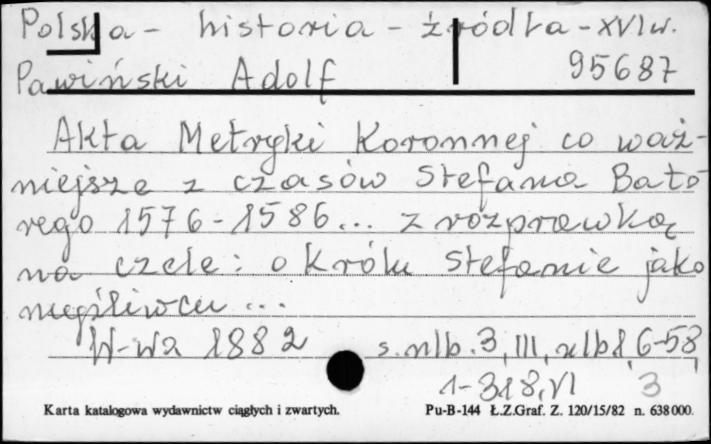 Polska - historia - źródła - XVI w.
Pawiński Adolf 95687
Akta Metryki Koronnej co waż-
niejsze z czasów Stefana Bato-
rego 1576-1586... z rozprawką
na czele: o królu Stefanie jako
myśliwcu ...
W-wa 1882 s. nlb. 3, III, nlb 1, 6-58,
1-318, VI 3
Karta katalogowa wydawnictw ciągłych i zwartych. Pu-B-144 Ł.Z.Graf. Z. 120/15/82 n. 638000.